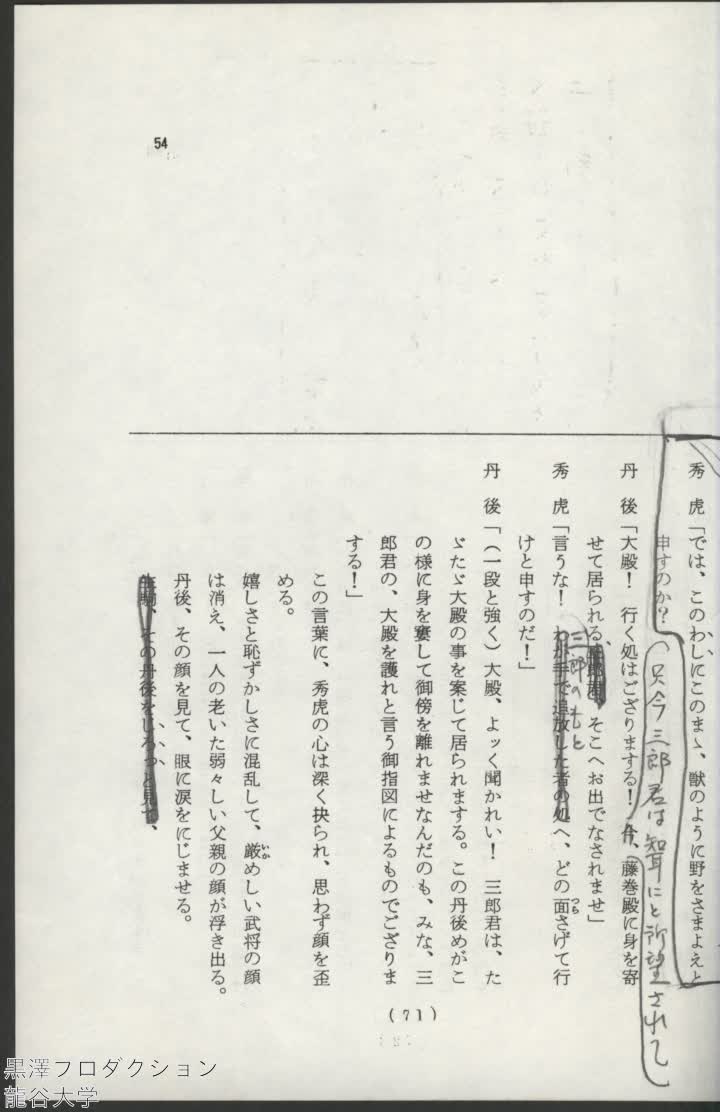 54
秀虎「では、このわしにこのまゝ、獣のように野をさまよえと
申すのか?
只今三郎君は聟にと所望されて
丹後「大殿! 行く処はござりまする! 今、藤巻殿に身を寄
せて居られる三郎君、そこへお出でなされませ」
三郎のもと
秀虎「言うな! わが手で追放した者の処へ、どの面さげて行
つら
けと申すのだ!」
丹後「(一段と強く)大殿、よッく聞かれい! 三郎君は、た
ゞたゞ大殿の事を案じて居られまする。この丹後めがこ
の様に身を窶して御傍を離れませなんだのも、みな、三
郎君の、大殿を護れと言う御指図によるものでござりま
する!」
この言葉に、秀虎の心は深く抉られ、思わず顔を歪
める。
嬉しさと恥ずかしさに混乱して、厳めしい武将の顔
いか
は消え、一人の老いた弱々しい父親の顔が浮き出る。
丹後、その顔を見て、眼に涙をにじませる。
生駒、その丹後をじろっと見て、
(71)
黒澤プロダクション
龍谷大学